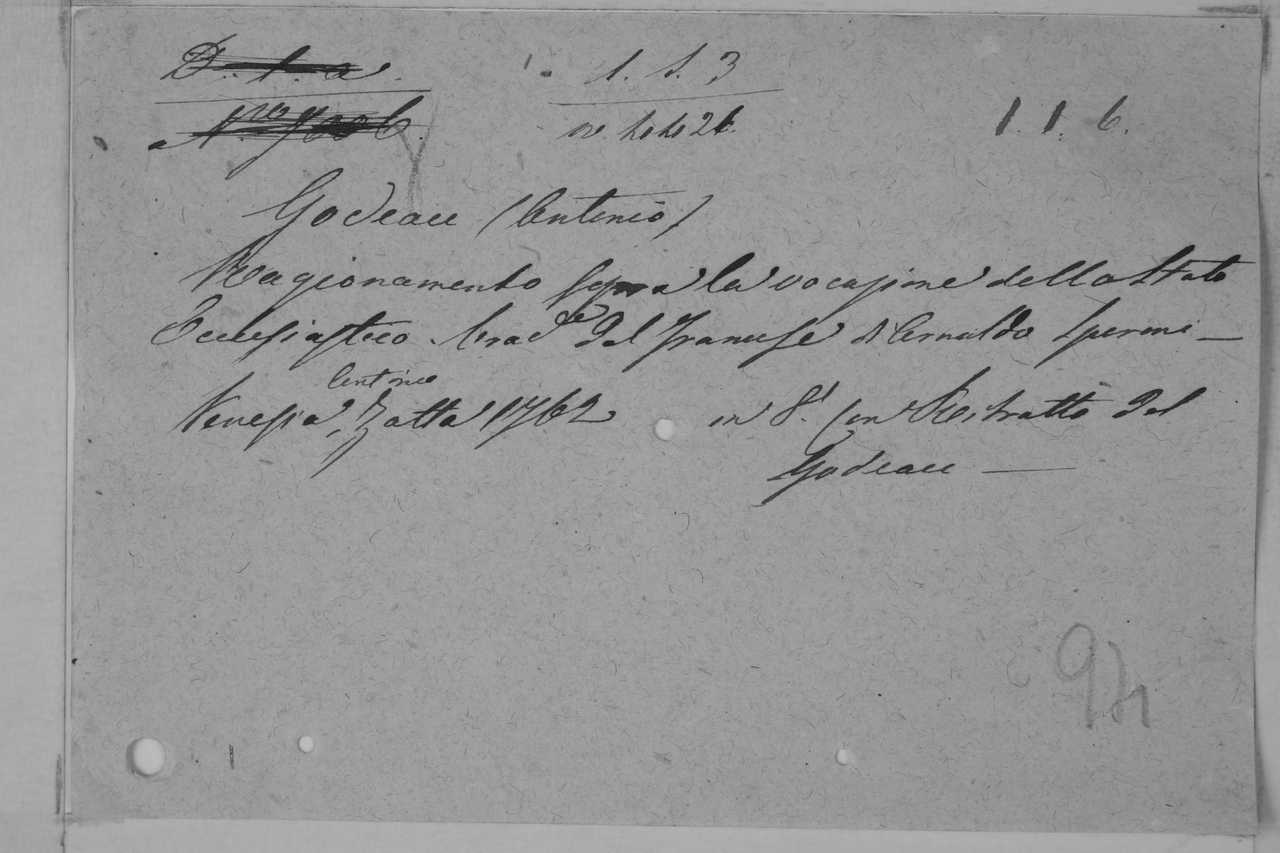 1. 1. 3
1. 1. 6.
Godeau (Antonio)
Ragionamento sopra la vocazione dello Stato
Ecclesiastico. Trad.e dal Francese di Arnaldo Speroni —
Venezia, Antonio Zatta 1762 in 8.° con Ritratto del
Godeau —